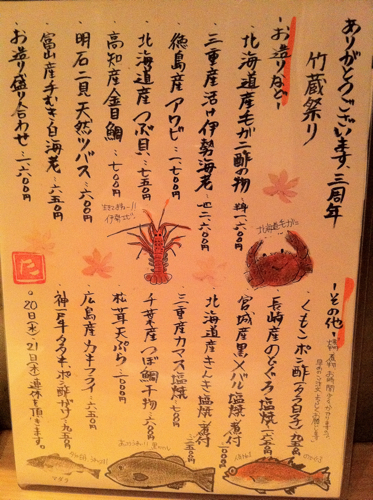 ありがとうございます、三周年
竹蔵祭り
-お造りなど-
・北海道産毛ガニ酢の物…
・三重産活け伊勢海老…
・徳島産アワビ…一、七〇〇円
・北海道産つぶ貝…七五〇円
・高知産金目鯛…七〇〇円
・明石二見天然ツバス…六〇〇円
・富山産手むき白海老…六五〇円
・お造り盛り合わせ…一、六〇〇円
北海道毛ガニ
伊勢エビ
た
-その他-
・くもこポン酢(タラ白子)九五〇円
・長崎産のどぐろ塩焼
・宮城産黒メバル塩焼・煮付
・北海道産きんき塩焼・煮付
・三重産カマス塩焼…七〇〇円
・千葉産つぼ鯛干物…六〇〇円
・松茸天ぷら
・広島産カキフライ…六五〇円
・神戸牛タタキポン酢がけ…九五〇円
。20日(水)・21日(木)連休を頂きます。